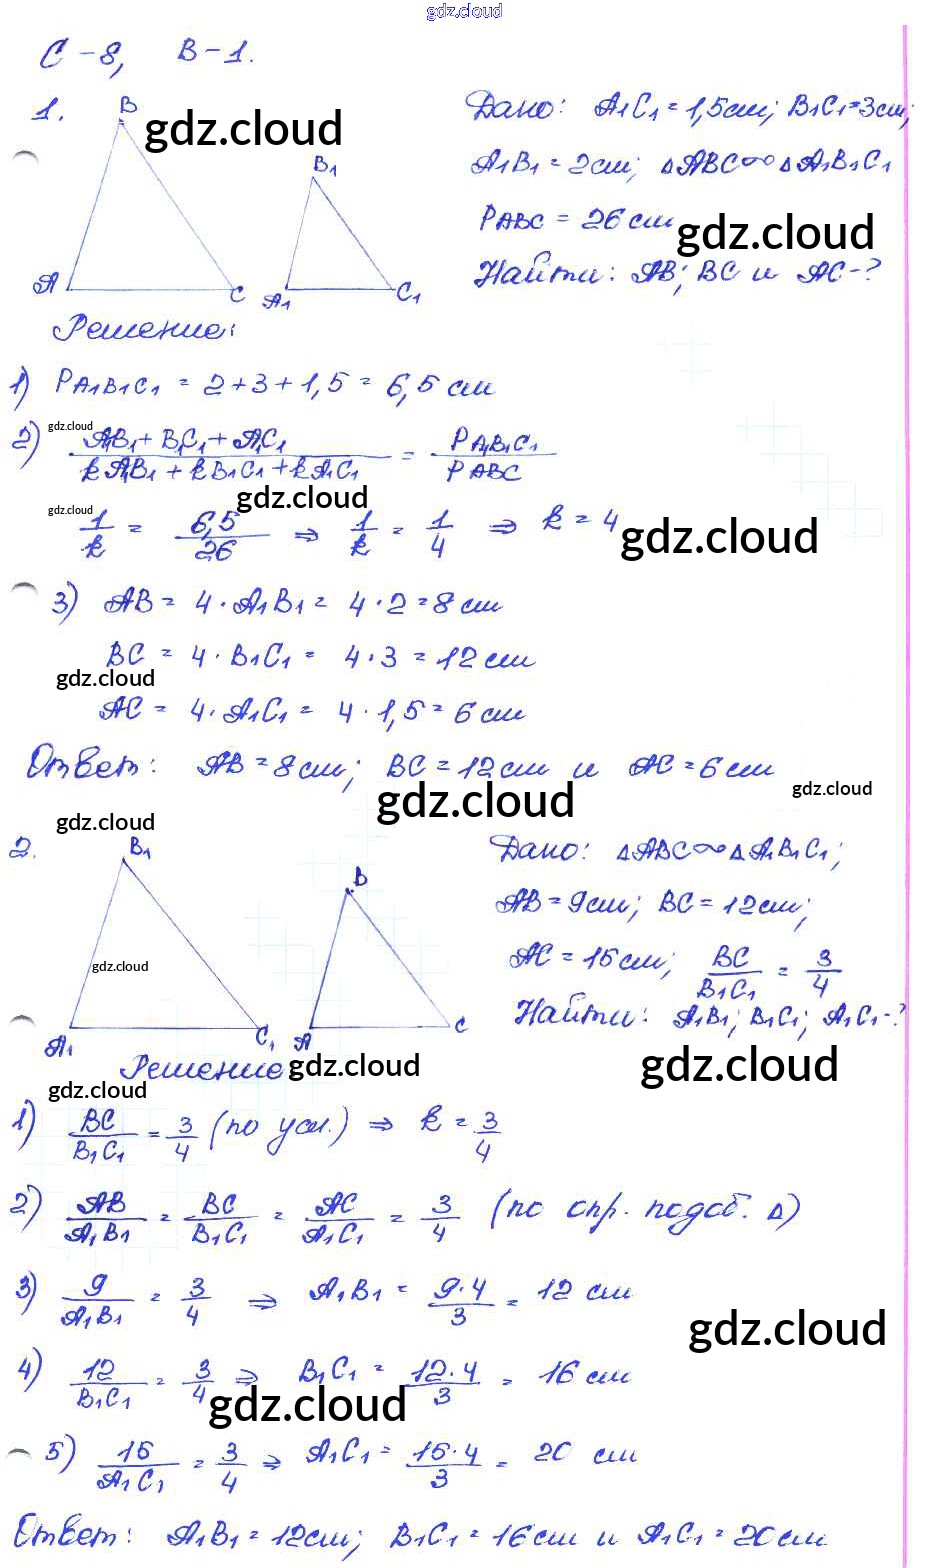 gdz.cloud
С-8, В-1.
1. B gdz.cloud Дано: A1C1 = 1,5см; B1C1 = 3см;
B1 A1B1 = 2см; ΔABC ∾ ΔA1B1C1
PABC = 26 см gdz.cloud
A C A1 C1 Найти: AB; BC и AC-?
Решение:
1) PA1B1C1 = 2+3+1,5 = 6,5 см
gdz.cloud
2) (A1B1 + B1C1 + A1C1)/(kA1B1 + kB1C1 + kA1C1) = PA1B1C1/PABC
gdz.cloud gdz.cloud
1/k = 6,5/26 ⇒ 1/k = 1/4 ⇒ k = 4 gdz.cloud
3) AB = 4 · A1B1 = 4 · 2 = 8 см
BC = 4 · B1C1 = 4 · 3 = 12 см
gdz.cloud
AC = 4 · A1C1 = 4 · 1,5 = 6 см
Ответ: AB = 8 см; BC = 12 см и AC = 6 см
gdz.cloud gdz.cloud
gdz.cloud
2. B1 Дано: ΔABC ∾ ΔA1B1C1;
B AB = 9см; BC = 12см;
gdz.cloud AC = 15 см; BC/B1C1 = 3/4
A1 C1 A C Найти: A1B1; B1C1; A1C1-?
Решение gdz.cloud gdz.cloud
gdz.cloud
1) BC/B1C1 = 3/4 (по усл.) ⇒ k = 3/4
2) AB/A1B1 = BC/B1C1 = AC/A1C1 = 3/4 (по опр. подоб. Δ)
3) 9/A1B1 = 3/4 ⇒ A1B1 = 9·4/3 = 12 см
gdz.cloud
4) 12/B1C1 = 3/4 ⇒ B1C1 = 12·4/3 = 16 см
gdz.cloud
5) 15/A1C1 = 3/4 ⇒ A1C1 = 15·4/3 = 20 см
Ответ: A1B1 = 12см; B1C1 = 16 см и A1C1 = 20 см